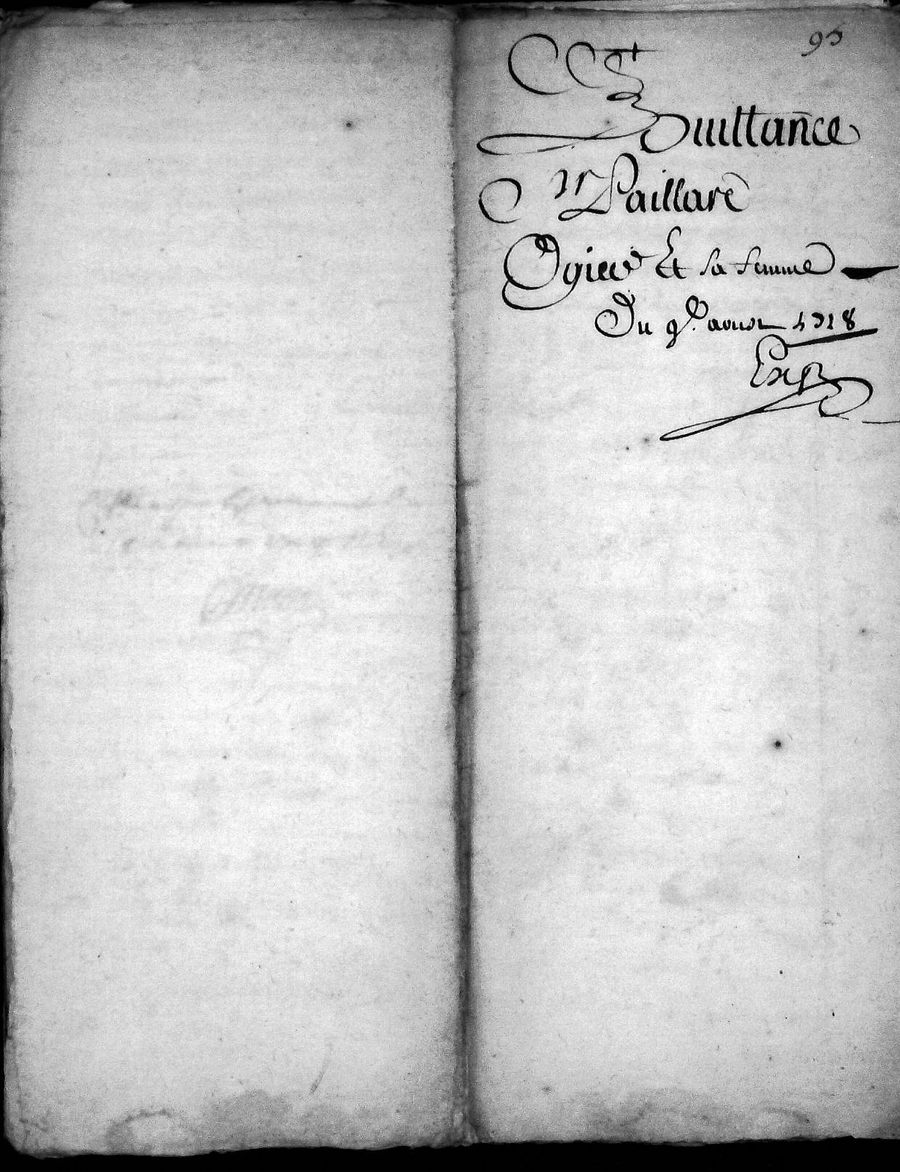 95
Quittance
Sr Paillare
Ogier Et sa femme
Du 9e. aoust 1718
Exp